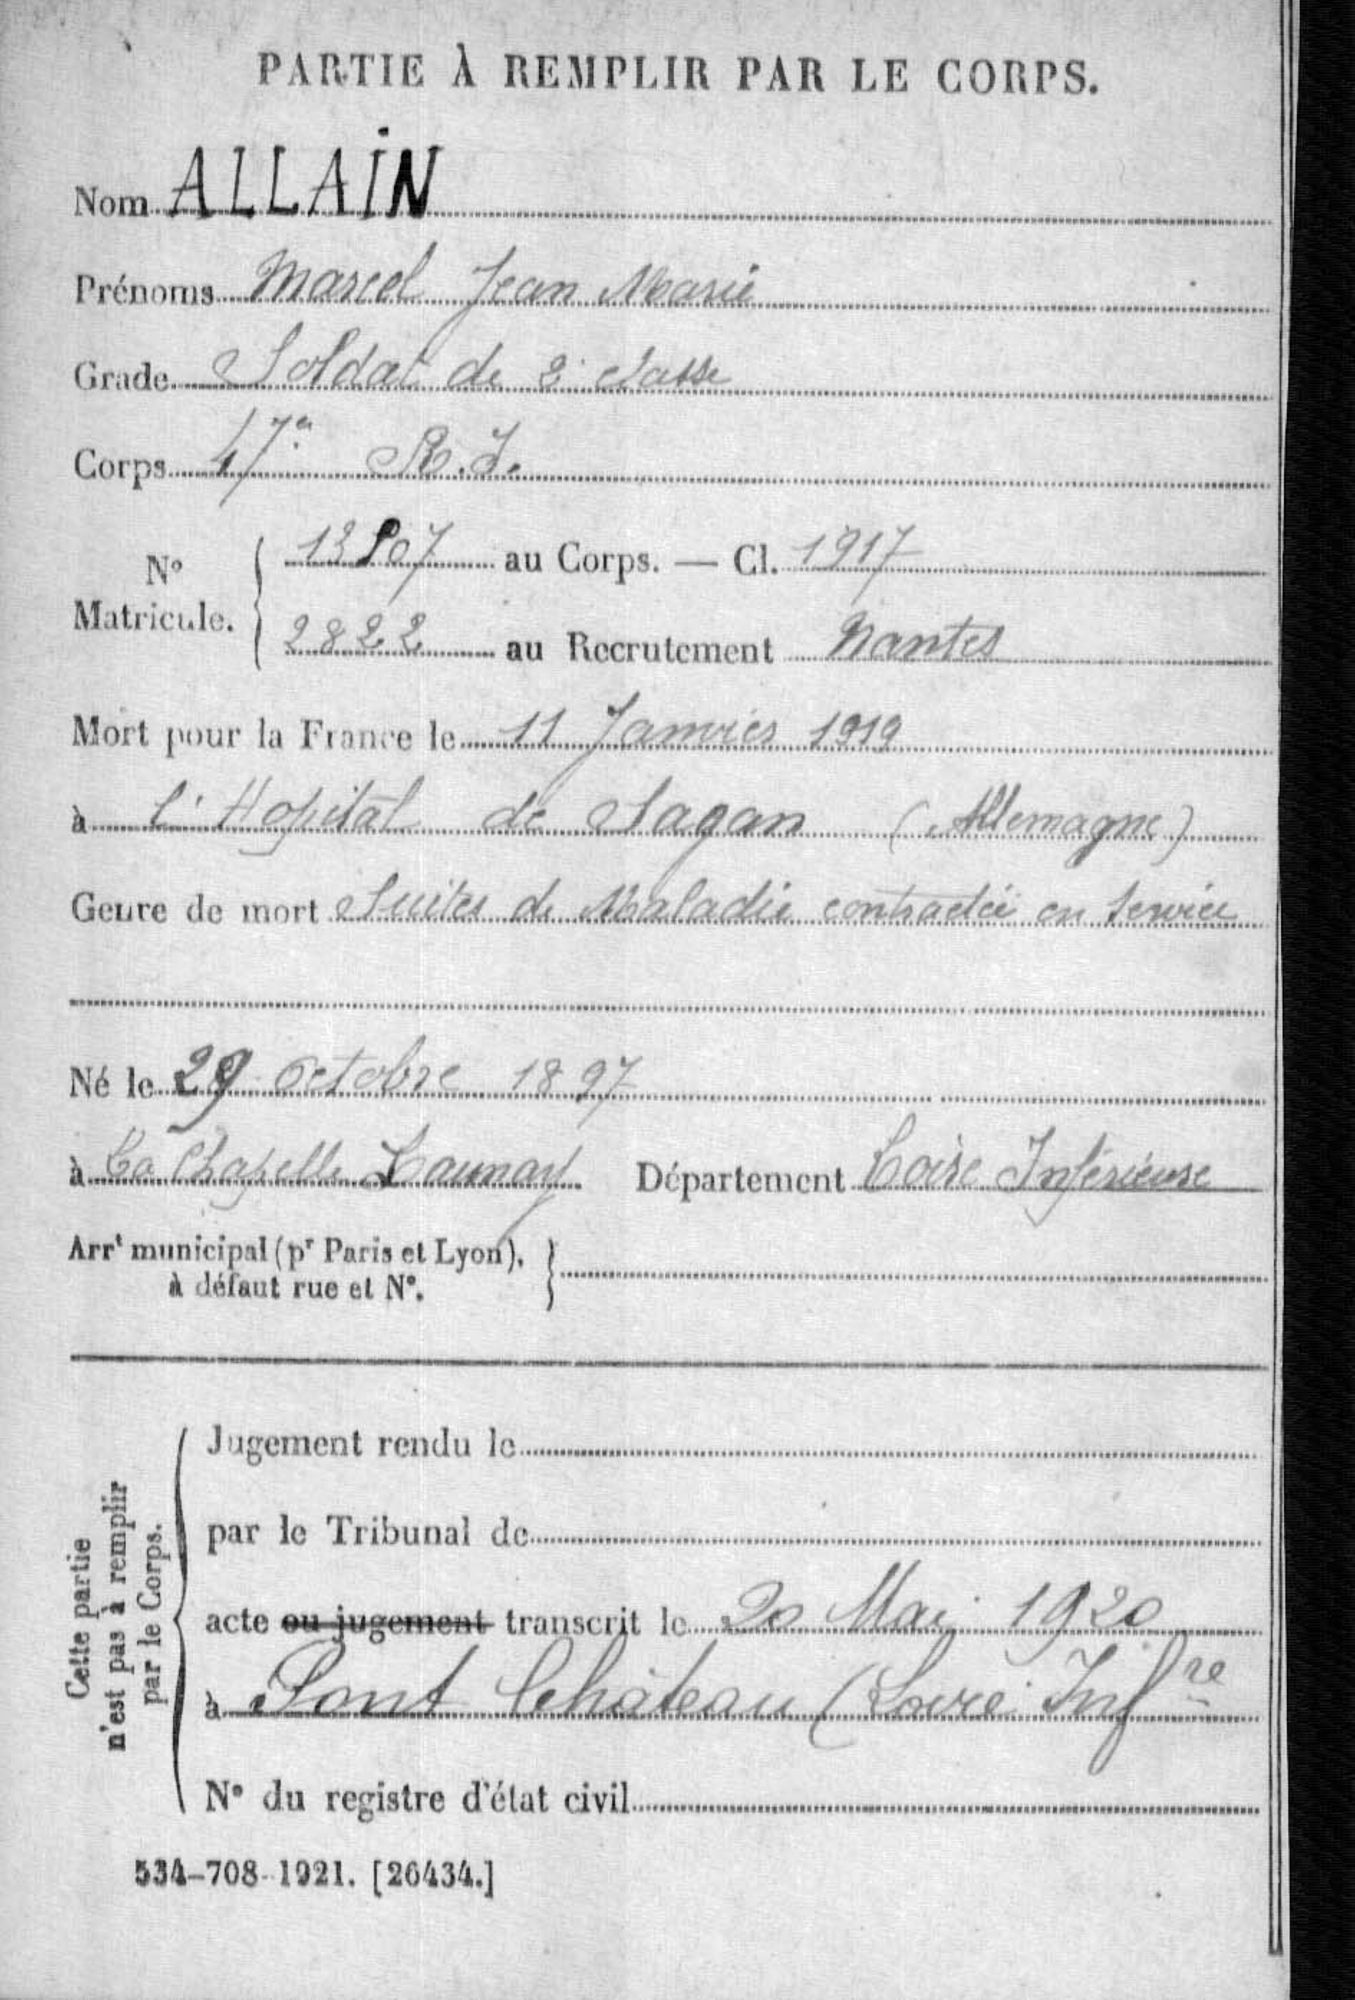 PARTIE À REMPLIR PAR LE CORPS.
Nom ALLAIN
Prénoms Marcel Jean Marie
Grade Soldat de 2e classe
Corps 47e R.I.
No Matricule. 13807 au Corps. — Cl. 1917
2822 au Recrutement Nantes
Mort pour la France le 11 Janvier 1919
à l'Hopital de Sagan (Allemagne)
Genre de mort Suites de Maladie contractée en Service
Né le 29 Octobre 1897
à La Chapelle Launay Département Loire Inférieure
Arrt municipal (pr Paris et Lyon),
à défaut rue et No.
Cette partie
n'est pas à remplir
par le Corps.
Jugement rendu le
par le Tribunal de
acte ou jugement transcrit le 20 Mai 1920
à Pont Château (Loire Infre
No du registre d'état civil
534-708-1921. [26434.]